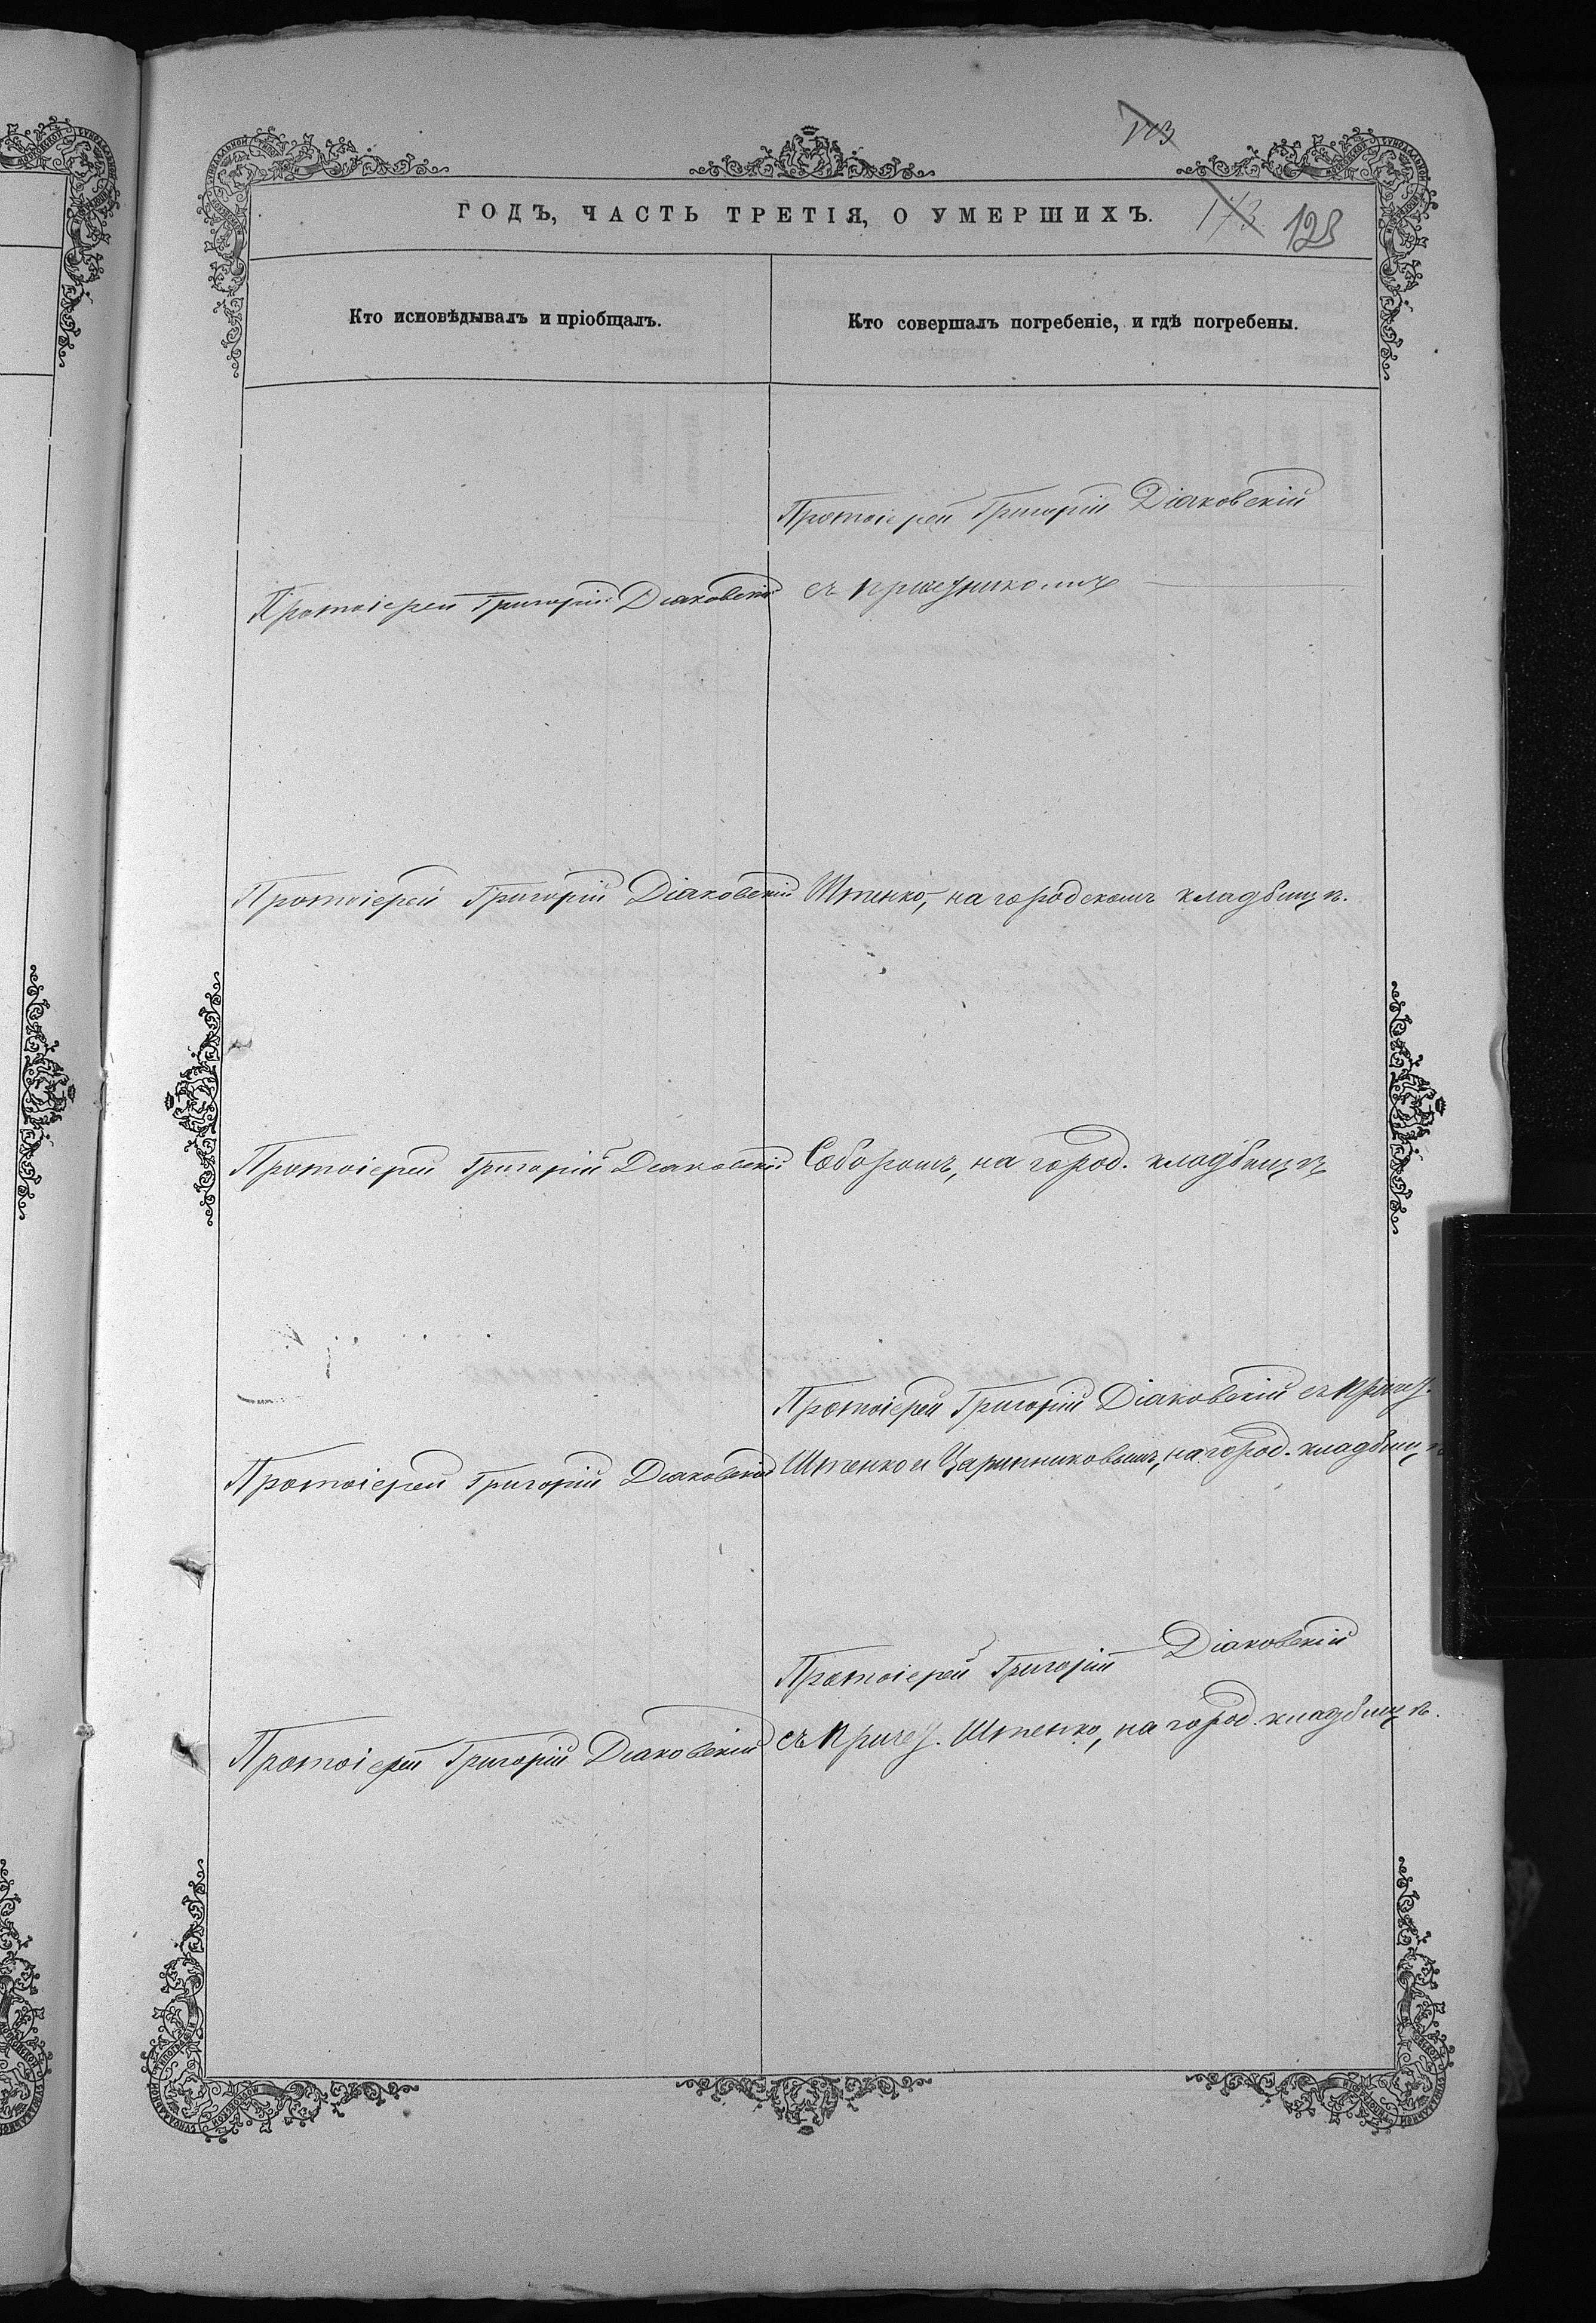 ГОДЪ, ЧАСТЬ ТРЕТІЯ, О УМЕРШИХЪ. 173 123
Кто исповѣдывалъ и пріобщалъ.
Кто совершалъ погребеніе, и гдѣ погребены.
Протоіерей Григорій Діаковскій
Протоіерей Григорій Діаковскій
съ причетникомъ
Протоіерей Григорій Діаковскій
Штенко, на городскомъ кладбищѣ.
Протоіерей Григорій Діаковскій
Соборомъ, на город. кладбищѣ
Протоіерей Григорій Діаковскій съ причет.
Протоіерей Григорій Діаковскій
Штенко и на город. кладбищѣ
Протоіерей Григорій Діаковскій
Протоіерей Григорій Діаковскій
съ причет. Штенко, на город. кладбищѣ.